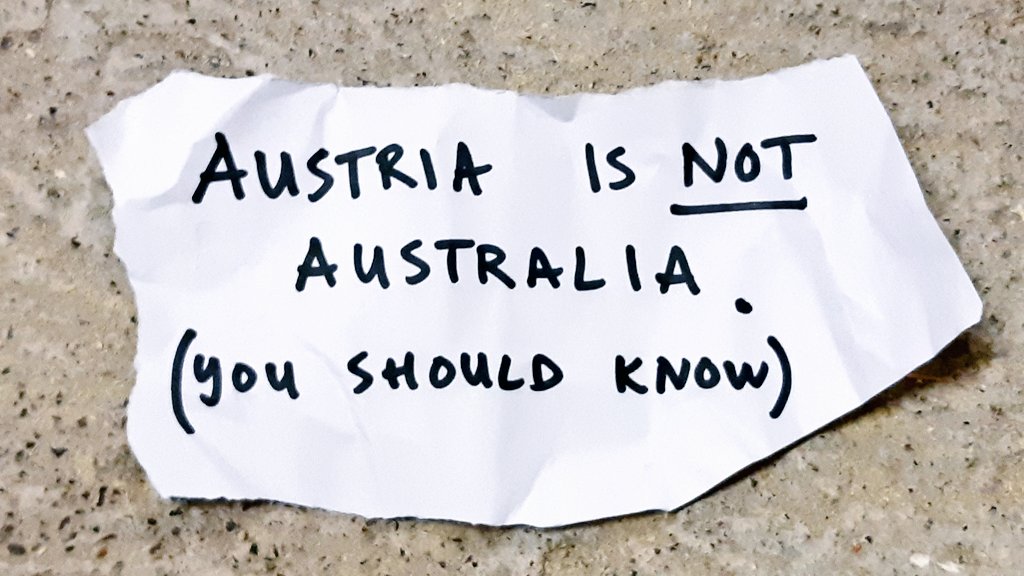 AUSTRIA IS NOT
AUSTRALIA.
(YOU SHOULD KNOW)